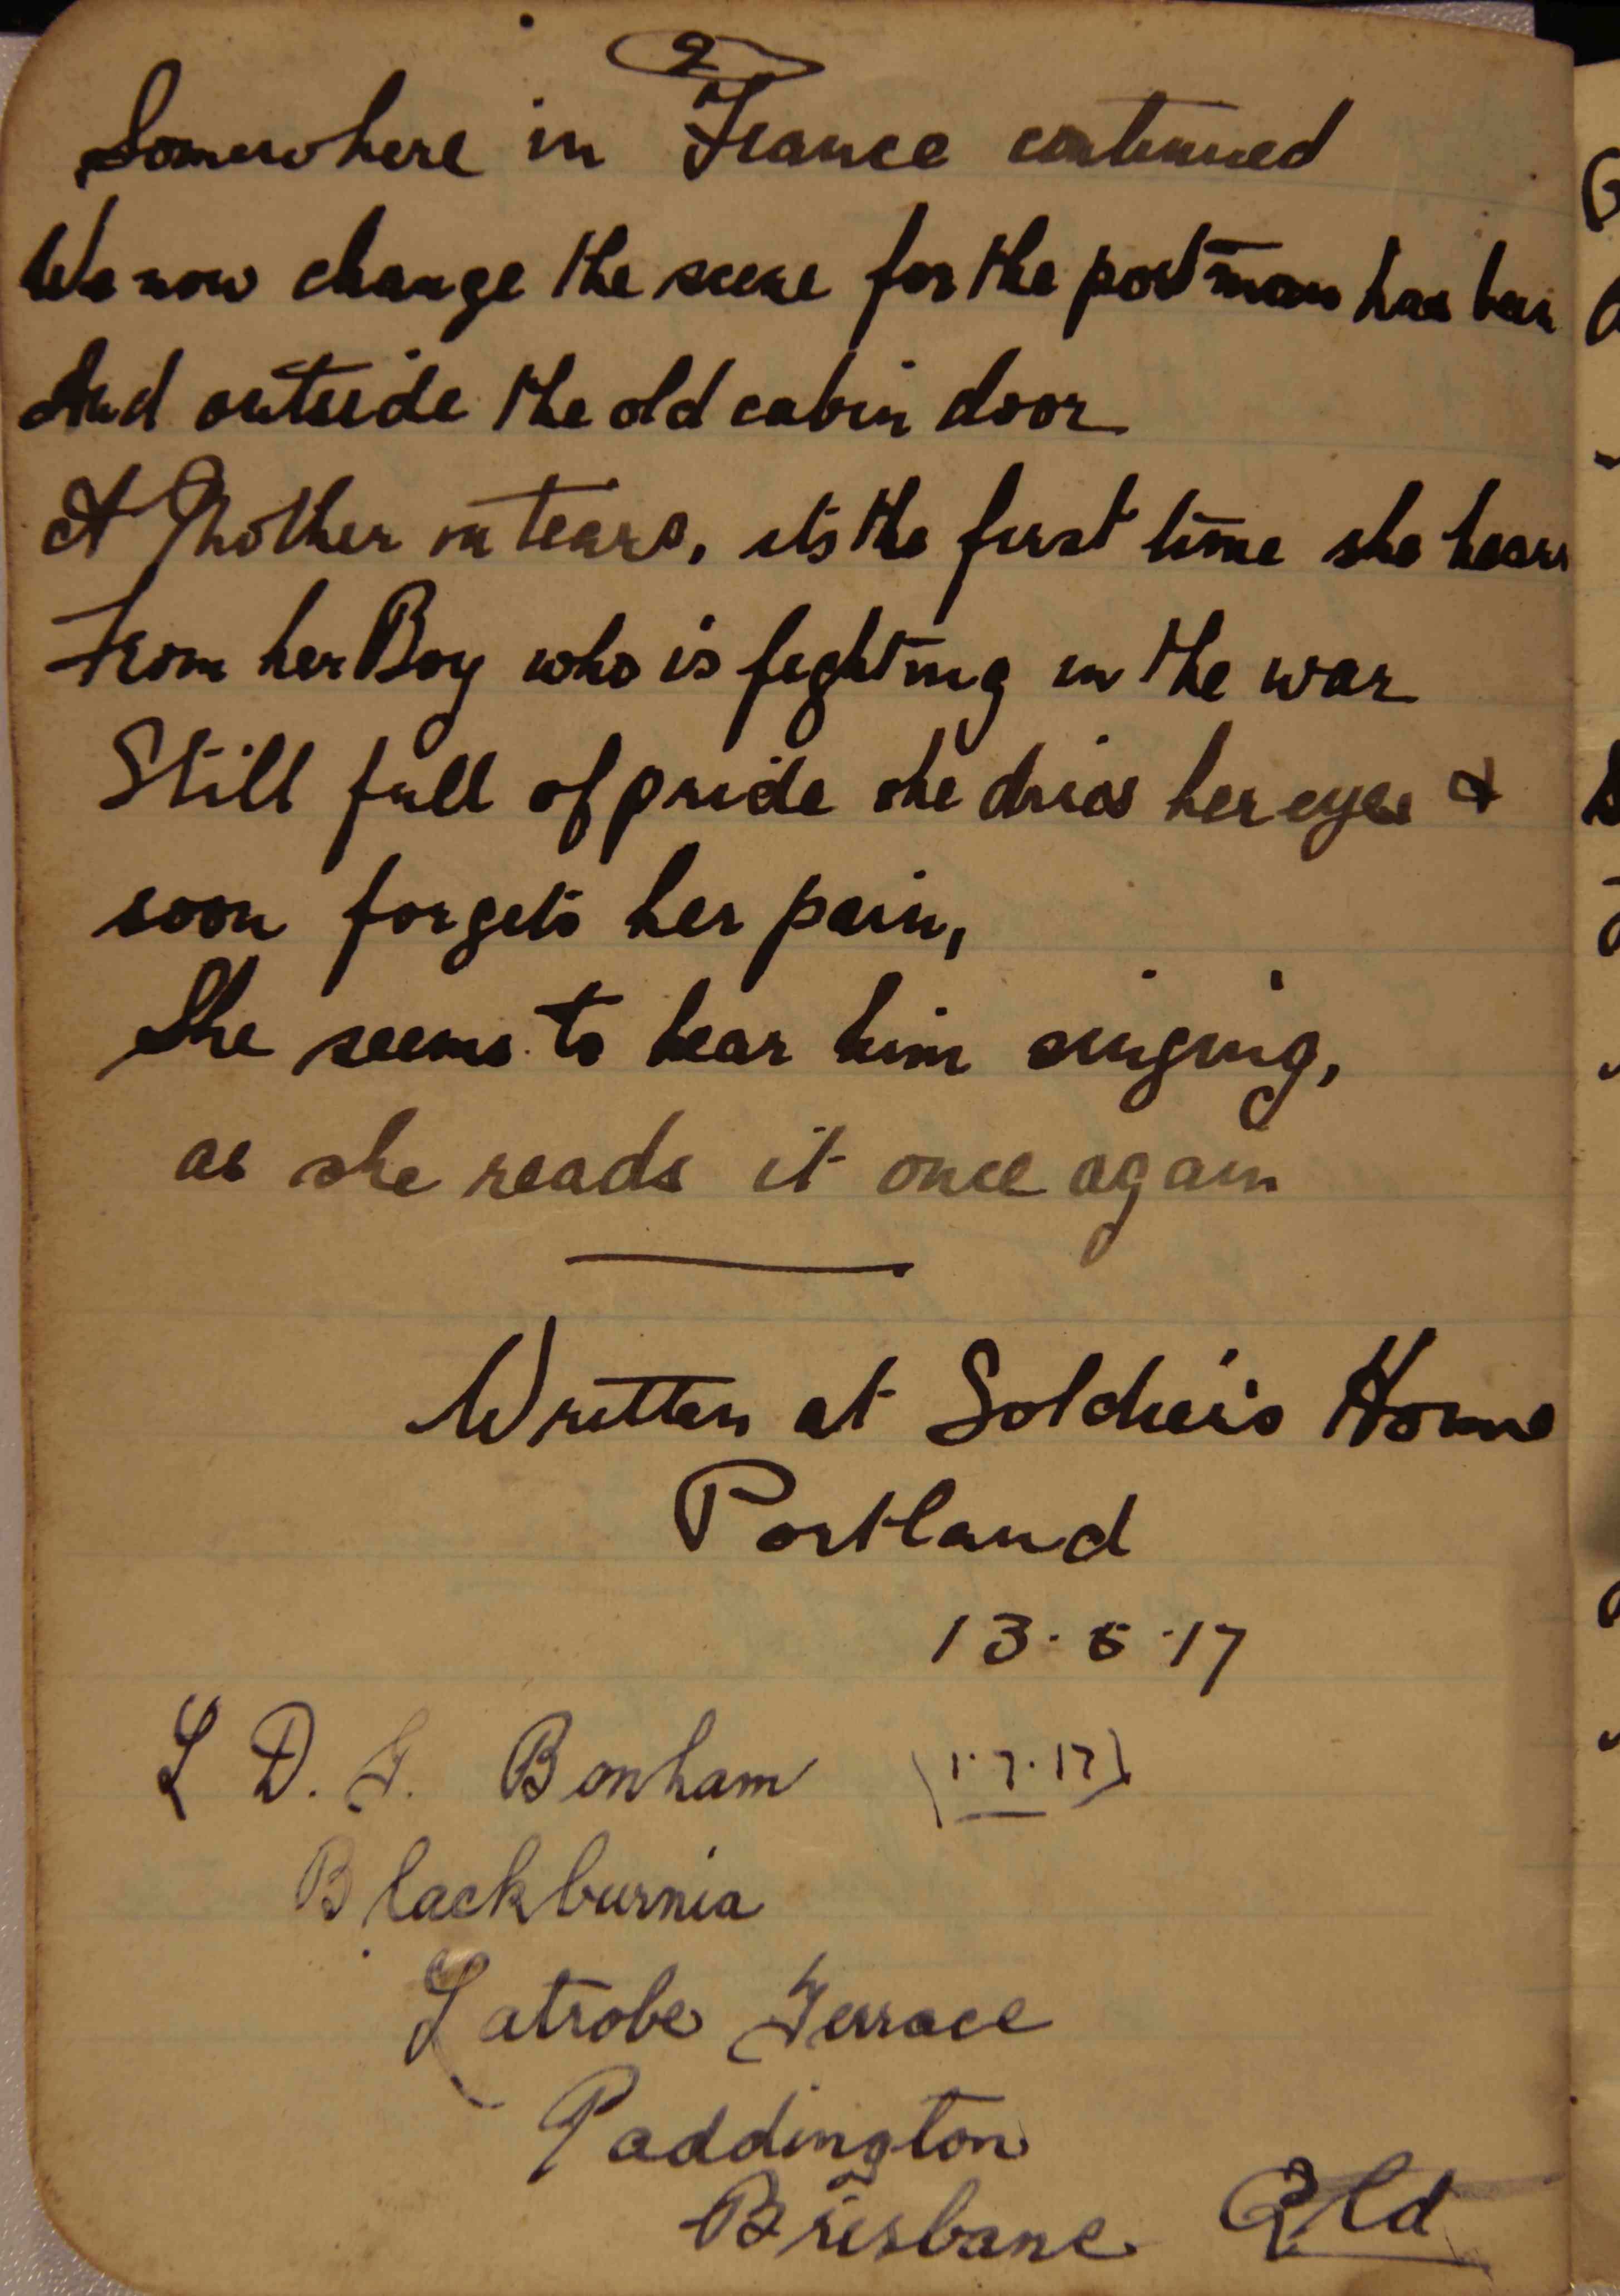 2
Somewhere in France continued
We now change the scene for the postman has been
And outside the old cabin door
A Mother in tears, its the first time she hears
From her Boy who is fighting in the war
Still full of pride she dries her eyes &
soon forgets her pain,
She seems to hear him singing,
as she reads it once again
Written at Soldier's Home
Portland
13.6.17
L D. G. Bonham (1.7.17)
Blackburnia
Latrobe Terrace
Paddington
Brisbane Qld